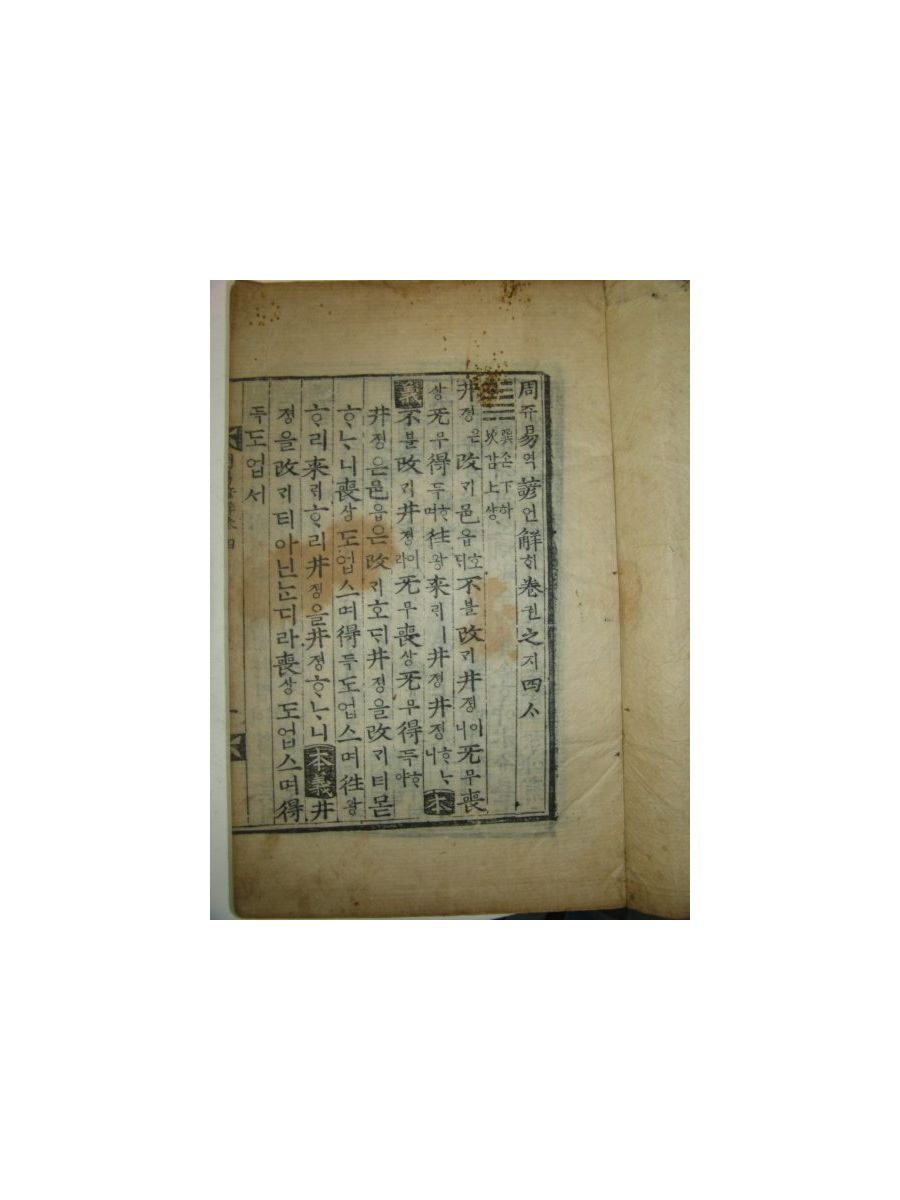 周쥬易역諺언解ᄒᆡ卷권之지四ᄉᆞ
巽손下하
坎감上샹
井졍은改ᄀᆡ邑읍호ᄃᆡ不불改ᄀᆡ井졍이니无무喪
상无무得득ᄒᆞ며往왕來ᄅᆡㅣ井졍井졍ᄒᆞᄂᆞ니本
義不불改ᄀᆡ井졍이라无무喪상无무得득ᄒᆞ야
井졍은邑읍은改ᄀᆡ호ᄃᆡ井졍을改ᄀᆡ티몯
ᄒᆞᄂᆞ니喪상도업스며得득도업스며往왕
ᄒᆞ리來ᄅᆡᄒᆞ리井졍을井졍ᄒᆞᄂᆞ니本義井
졍을改ᄀᆡ티아닌ᄂᆞᆫ디라喪상도업스며得
득도업서